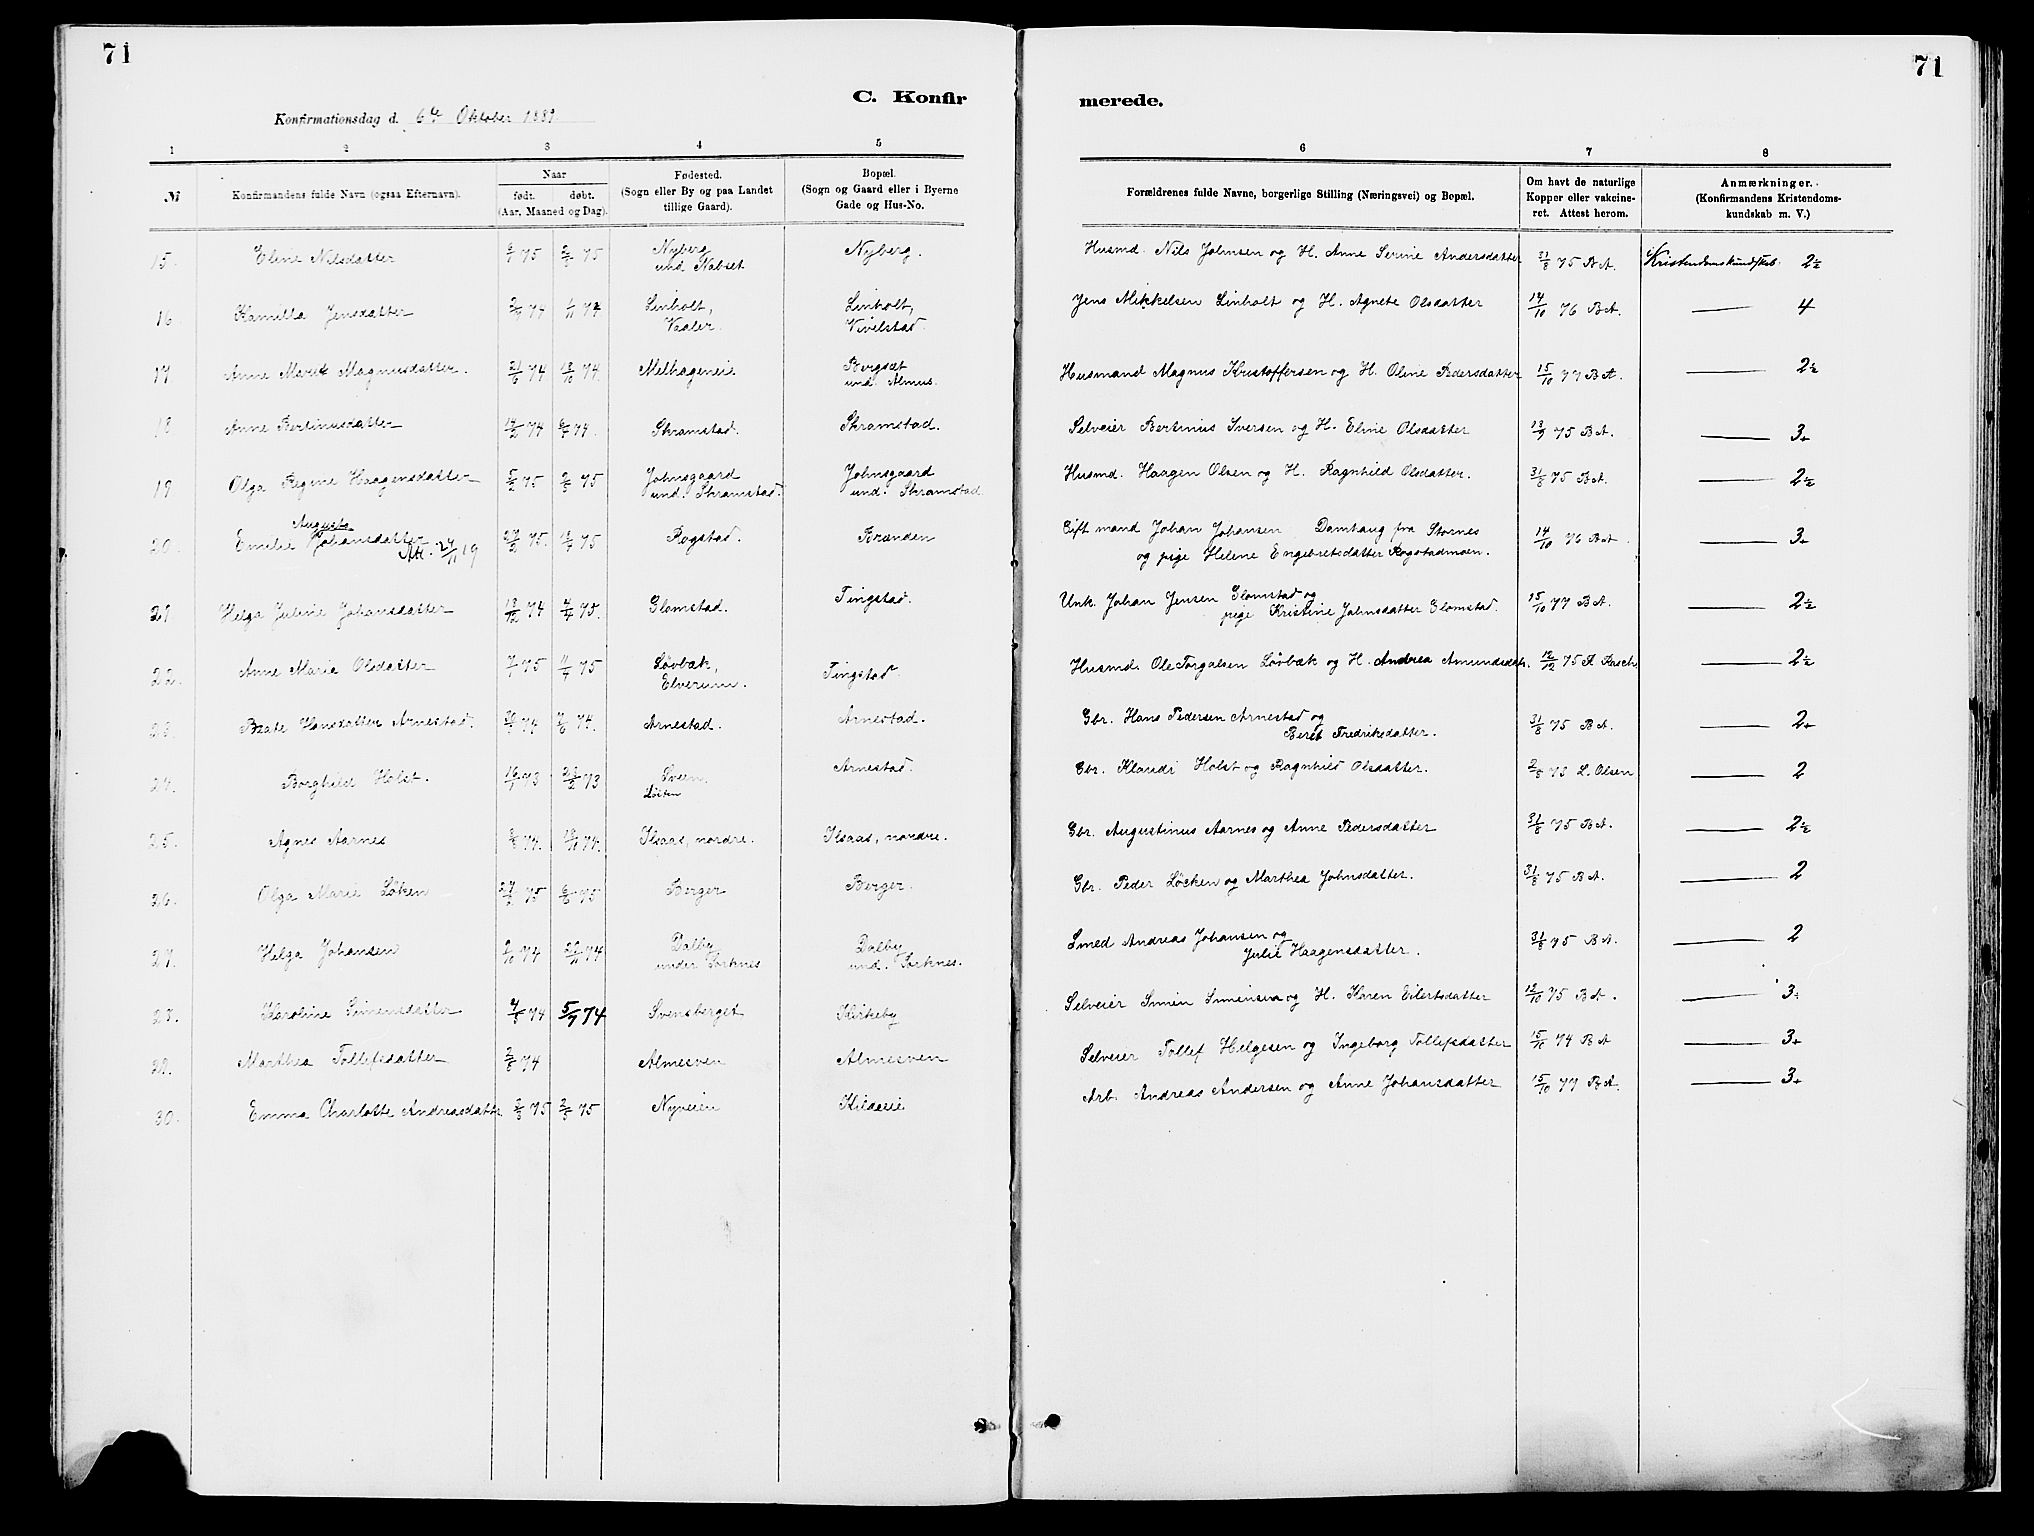 71
71
C. Konfir
merede.
Konfirmationsdag d. 6te Oktober 1889
1 2 3 4 5 6 7 8
№ Konfirmandens fulde Navn (ogsaa Efternavn).
Naar
født. døbt.
(Aar, Maaned og Dag).
Fødested.
(Sogn eller By og paa Landet
tillige Gaard).
Bopæl.
(Sogn og Gaard eller i Byerne
Gade og Hus-No.
Forældrenes fulde Navne, borgerlige Stilling (Næringsvei) og Bopæl.
Om havt de naturlige
Kopper eller vakcine-
ret. Attest herom.
Anmærkninger.
(Konfirmandens Kristendoms-
kundskab m. V.)
15. Eline Nilsdatter 75 75 Nyberg Nyberg. Husmd. Nils Johnsen og H. Anne Serine Andersdatter 31/8 75 B A. Kristendomskundskab 2½
und. Nabset
16 Kamilla Jensdatter 74 74 Linholt, Linholt, Jens Mikkelsen Linholt og H. Agnete Olsdatter 14/10 76 B A. — 4
Vaaler. Vivelstad.
17. Anne Marie Magnusdatter. 21/6 74 18/10 74. Melhageneie Bergsæt Husmand Magnus Kristoffersen og H. Oline Pedersdatter 15/10 77 B A. — 2½
und. Almus.
18 Anne Bertinusdatter 74 74. Skramstad. Skramstad. Selveier Bertinius Iversen og H. Eline Olsdatter 13/9 75 B A. — 3+
19 Olga Regine Haagensdatter 5/2 75 75 Johnsgaard Johnsgaard Husmd. Haagen Olsen og H. Ragnhild Olsdatter. 31/8 75 B A. — 2½
und. Skramstad. und. Skramstad
Augusta
20. Emilie Johansdatter 27/2 75. 75 Rogstad. Brænden Gift mand Johan Johansen Damhaug fra Stornes 14/10 76 B A. — 3+
Att. 24/11 19 og pige Helene Engebretsdatter Rogstadmoen.
21. Helga Juline Johansdatter 18/12 74 75. Glomstad. Tingstad. Unk. Johan Jensen Glomstad og 15/10 77 B A. — 2½
pige Kristine Johnsdatter Glomstad.
22. Anne Maria Olsdatter 75 75 Løvbæk, Tingstad. Husmd. Ole Torgalsen Løvbæk og H. Andrea Amundsdatr. 12/12 75 — 2½
Elverum.
23. Beate Hansdatter Arnestad. 74 74. Arnestad. Arnestad. Gbr. Hans Pedersen Arnestad og 31/8 75 B A. — 2+
Beret Fredriksdatter.
24. Borghild Holst. 73 73 Sveen Arnestad. Gbr. Klaudi Holst og Ragnhild Olsdatter. L. Olsen — 2
Løiten
25. Agnes Aarnes 74. 74. Ilsaas, nordre. Ilsaas, nordre. Gbr. Augustinus Aarnes og Anne Pedersdatter 31/8 75 B A. — 2½
26. Olga Marie Løken 27/2 75 75 Berger Berger. Gbr. Peder Løcken og Marthea Johnsdatter. 31/8 75 B A. — 2
27. Helga Johansen 74 74 Dalby Dalby Smed Andreas Johansen og 31/8 75 B A. — 2
under Sorknes und. Sorknes. Julie Haagensdatter.
28. Karoline Simensdatter 74 5/7 74 Svensberget Kirkeby Selveier Simen Simensen og H. Karen Eilertsdatter 12/10 75 B A. — 3
29. Marthea Tollefsdatter 74 Almesven Almesven Selveier Tollef Helgesen og Ingeborg Tollefsdatter 15/10 74 B A — 3+
30. Emma Charlotte Andreasdatter 75 75 Nyveien Kildeeie Arb. Andreas Andersen og Anne Johansdatter 15/10 77 B A. — 3+